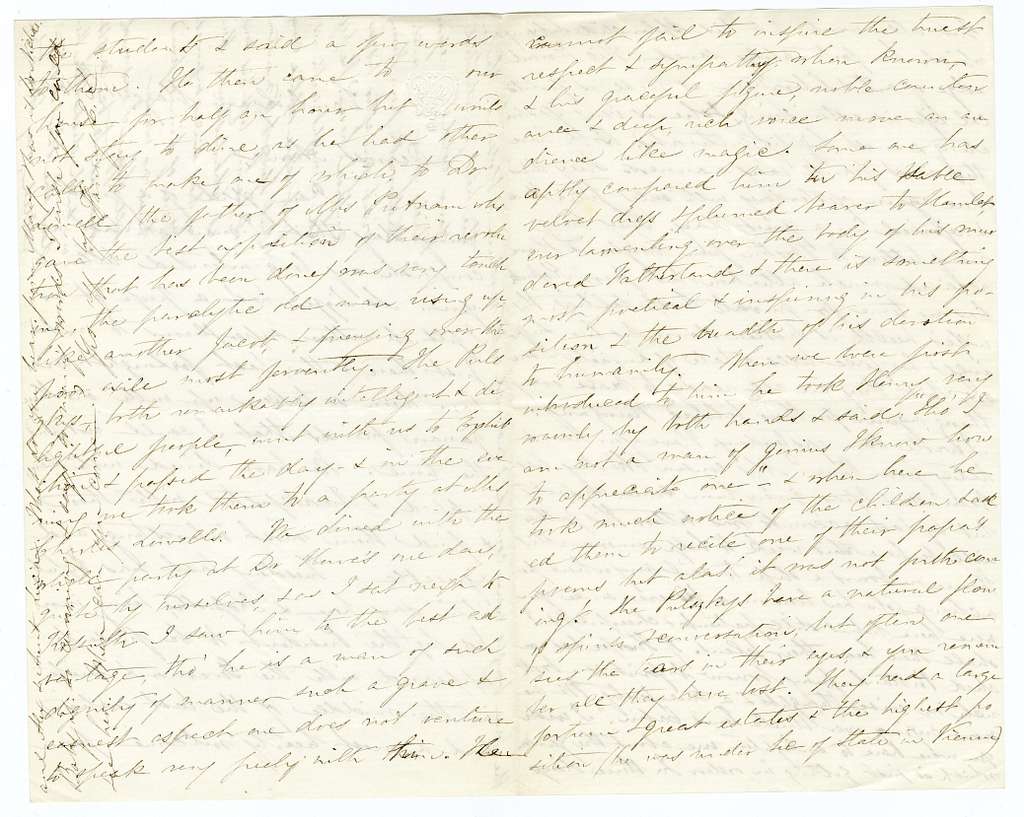 the students & said a few words
to them. He then came to our
house for half an hour but would
not stay to dine, as he had other
calls to make, one of which, to Dr.
Lowell (the father of Mrs Putnam who
gave the best exposition of their revolu
tion, that has been done) was very touch
ing, the paralytic old man rising up,
like another Jacob, & praying over the
poor exile most fervently. The Puls
zkys, both remarkably intelligent & de
lightful people, went with us to
& passed the day & in the eve
ning we took them to a party at Mrs
Charles Lowells. We dined with the
whole party at Dr Howe's one day,
quite by ourselves, & as I sat next to
Kossuth I saw him to the best ad
vantage, tho' he is a man of such
dignity of manner, such a grave &
earnest aspect one does not venture
to speak very freely with him. He
cannot fail to inspire the truest
respect & sympathy when known,
& his graceful figure, noble counten
ance & deep, rich voice move an au
dience like magic. Some one has
aptly compared him in his sable
velvet dress & plumed beaver to Hamlet,
ever lamenting over the body of his mur
dered Fatherland, & there is something
most poetical & inspiring in his po-
sition & the breadth of his devotion
to humanity. When we were first
introduced to him he took Henry very
warmly by both hands & said, "Tho' I
am not a man of genius I know how
to appreciate one" – & when here he
took much notice of the children & ask
ed them to recite one of their papa's
poems but alas! it was not forthcom
ing! The Pulszkys have a natural flow
of spirits & conversation, but often one
sees the tears in their eyes & you remem
ber all they have lost. They had a large
fortune & great estates & the highest po
sition (he was under Sec of State in Vienna)